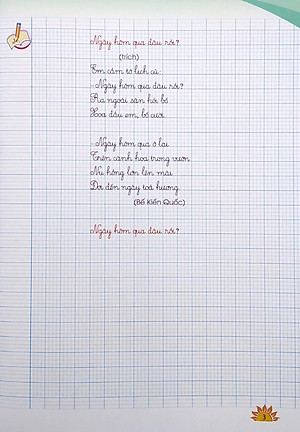 Ngày hôm qua đâu rồi?
(trích)
Em cầm tờ lịch cũ:
- Ngày hôm qua đâu rồi?
Ra ngoài sân hỏi bố
Xoa đầu em, bố cười.
- Ngày hôm qua ở lại
Trên cành hoa trong vườn
Nụ hồng lớn lên mãi
Đợi đến ngày toả hương.
(Bế Kiến Quốc)
Ngày hôm qua đâu rồi?
3